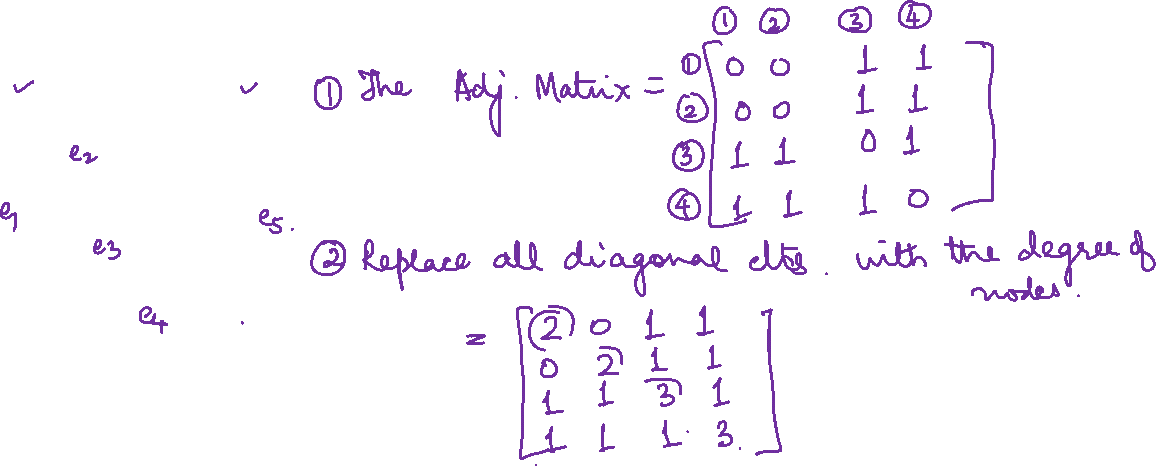 ① ② ③ ④
① The Adj. Matrix =
① 0 0 1 1
② 0 0 1 1
③ 1 1 0 1
④ 1 1 1 0
e2
e1
e3
e5.
e4
② Replace all diagonal elts. with the degree of
nodes.
=
2 0 1 1
0 2 1 1
1 1 3 1
1 1 1 3